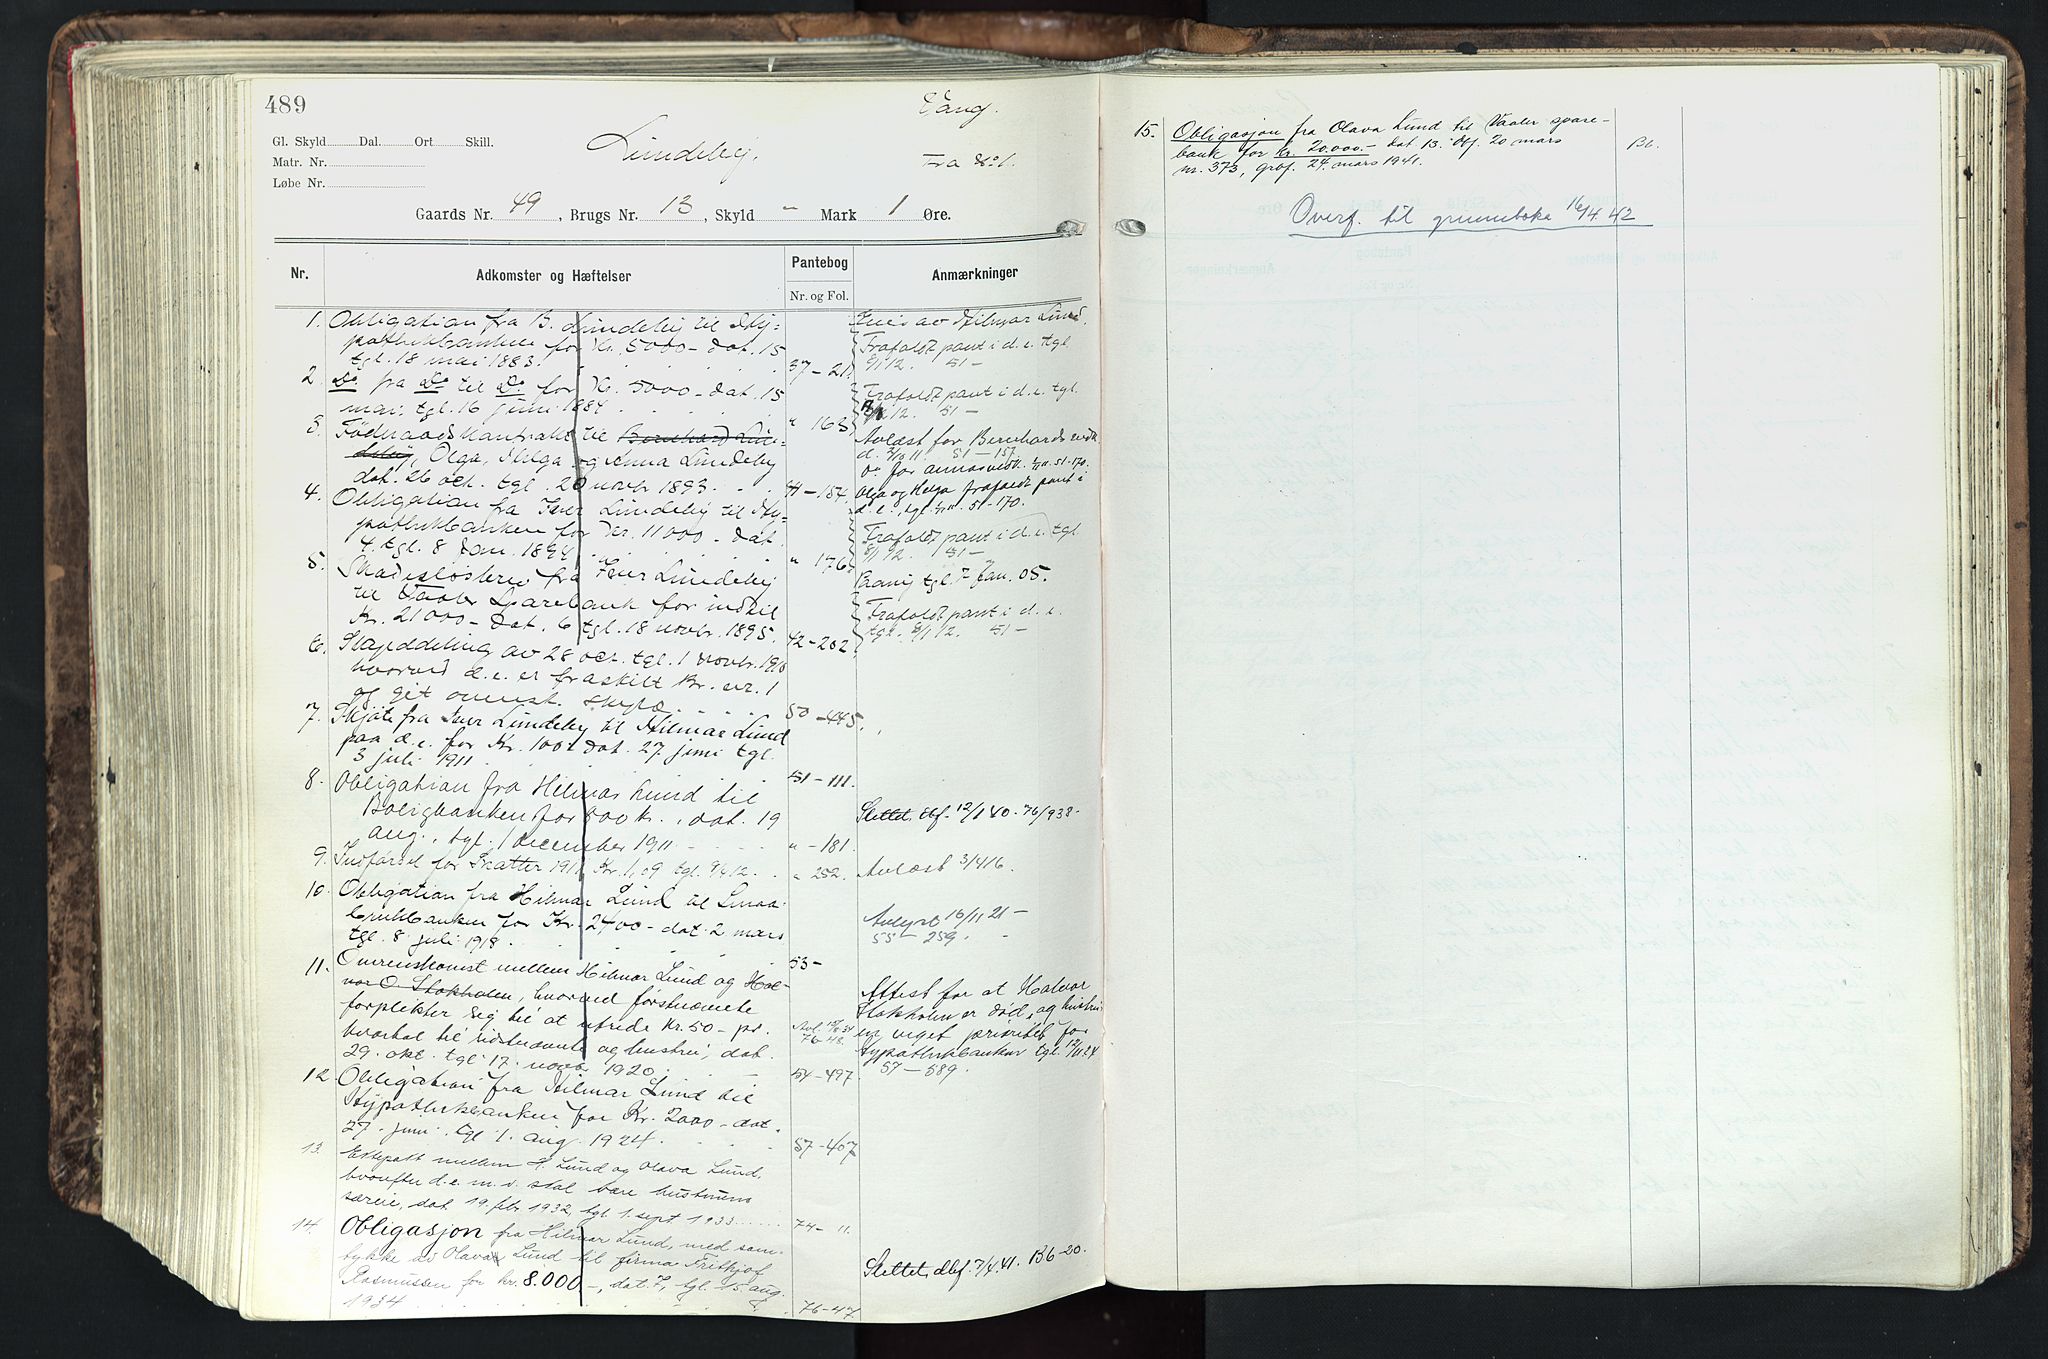 489
Vang.
Gl. Skyld Dal. Ort Skill.
Lundeby.
Matr. Nr.
Fra No 1.
Løbe Nr.
Gaards Nr. 49, Brugs Nr. 13, Skyld " Mark 1 Øre.
Nr. Adkomster og Hæftelser Pantebog Anmærkninger
Nr. og Fol.
1. Obligation fra B. Lundeby til Hy-
pothekbanken for Kr. 5000 - dat. 15
tgl. 18 mai 1883. 37-21.
Eies av Hilmar Lund.
Frafaldt pant i d. e. tgl.
8/1 12. 51 -
2 Do fra Do til Do for Kr. 5000 - dat. 15
mai. tgl. 16 juni 1884 " 163.
Frafaldt pant i d. e. tgl.
8/1 12. 51 -
3. Föderaadskontrakt til Bernhard Lun-
deby, Olga, Helga og Anna Lundeby
dat. 26 oct. tgl. 20 novbr 1893. 41-154.
Avlæst for Bernhards vedk.
51-157.
Do for Annas vedk. 51-170.
Olga og Helga frafaldt pant i
d. e., tgl. 51-170.
4. Obligation fra Iver Lundeby til Hy-
pothekbanken for Kr. 11000 - dat.
4. tgl. 8 Jan. 1894 " 176.
Frafaldt pant i d. e. tgl.
8/1 12. 51 -
5. Skadesløsbrev fra Iver Lundeby
til Vaaler Sparebank for indtil
Kr. 21000 - dat. 6 tgl. 18 novbr. 1895. 42-202.
tgl. 7 Jan. 05.
Frafaldt pant i d. e.
tgl. 8/1 12. 51 -
6. Skylddeling av 28 oct. tgl. 1 novbr. 1910
hvorved d. e. er fraskilt Br. nr. 1
og git omenst. skyld. 50-445.
7. Skjøte fra Iver Lundeby til Hilmar Lund
paa d. e. for Kr. 100 - dat. 27 juni tgl.
3 juli 1911 51-111.
8. Obligation fra Hilmar Lund til
Boligbanken for 800 kr., dat. 19
aug., tgl. 1 december 1911 " -181.
Slettet, dbf. 12/1 40. 76/938.
9. Indførsel for Skatter 1911 Kr. 1,09 tgl. 9/4 12. " 252.
Avlæst 3/4 16.
10. Obligation fra Hilmar Lund til Smaa-
brukbanken for Kr. 2400 - dat. 2 mars
tgl. 8 juli 1918. 53-
Avlyst 16/11 21 -
55-259.
11. Overenskomst mellem Hilmar Lund og Hal-
vor O Stokholen, hvorved førstnævnte
forplikter sig til at utrede Kr. 50 - pr.
kvartal til sidstnævnte og hustru, dat.
29. okt. tgl. 17. novbr 1920. 54-497.
76-48
Attest for at Halvor
Stokholen er død, og hustru
veget prioritet for
Hypothekbanken tgl. 12/11 24
57-589.
12. Obligation fra Hilmar Lund til
Hypothekbanken for Kr. 2000 - dat.
27. juni. tgl 1. aug. 1924. 57-407
13. Ektepakt mellem H. Lund og Olava Lund,
hvorefter d. e. m. v. skal være hustruens
særeie, dat. 19. febr 1932, tgl. 1. sept 1933 74- 11.
14. Obligasjon fra Hilmar Lund, med sam-
tykke av Olava Lund til firma Frithjof
Rasmussen for kr. 8.000 -, dat. 7, tgl. 15. aug.
1934 76-47.
Slettet, dbf. 7/4. 41. B6-20.
15. Obligasjon fra Olava Lund til Vaaler spare-
bank for Kr. 20.000.- dat 13. dbf. 20 mars
nr. 373, grbf. 24. mars 1941. B6.
Overf. til grunnboka 16/4 42